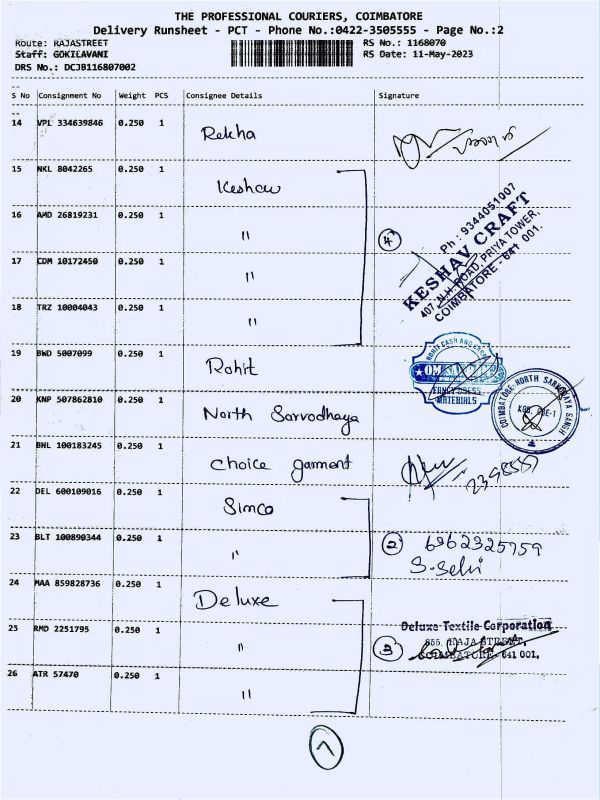 THE PROFESSIONAL COURIERS, COIMBATORE
Delivery Runsheet - PCT - Phone No.:0422-3505555 - Page No.:2
Route: RAJASTREET RS No.: 1168070
Staff: GOKILAVANI RS Date: 11-May-2023
DRS No.: DCJB116807002
S No Consignment No Weight PCS Consignee Details Signature
14 VPL 334639846 0.250 1 Rekha
15 NKL 8042265 0.250 1 Keshav
16 AMD 26819231 0.250 1 "
4
17 CDM 10172450 0.250 1 "
18 TRZ 10004043 0.250 1 "
Ph : 9344051007
KESHAV CRAFT
407, N.H. ROAD, PRIYA TOWER,
COIMBATORE - 641 001.
19 BWD 5007099 0.250 1 Rohit
MATERIALS
20 KNP 507862810 0.250 1 North Sarvodhaya
COIMBATORE NORTH SARVODAYA SANGH
21 BNL 100183245 0.250 1 choice garment
22 DEL 600109016 0.250 1 Simco
23 BLT 100890344 0.250 1 "
2
S. Selvi
24 MAA 859828736 0.250 1 Deluxe
25 RMD 2251795 0.250 1 "
Deluxe Textile Corporation
3
855, RAJA STREET,
COIMBATORE - 641 001.
26 ATR 57470 0.250 1 "